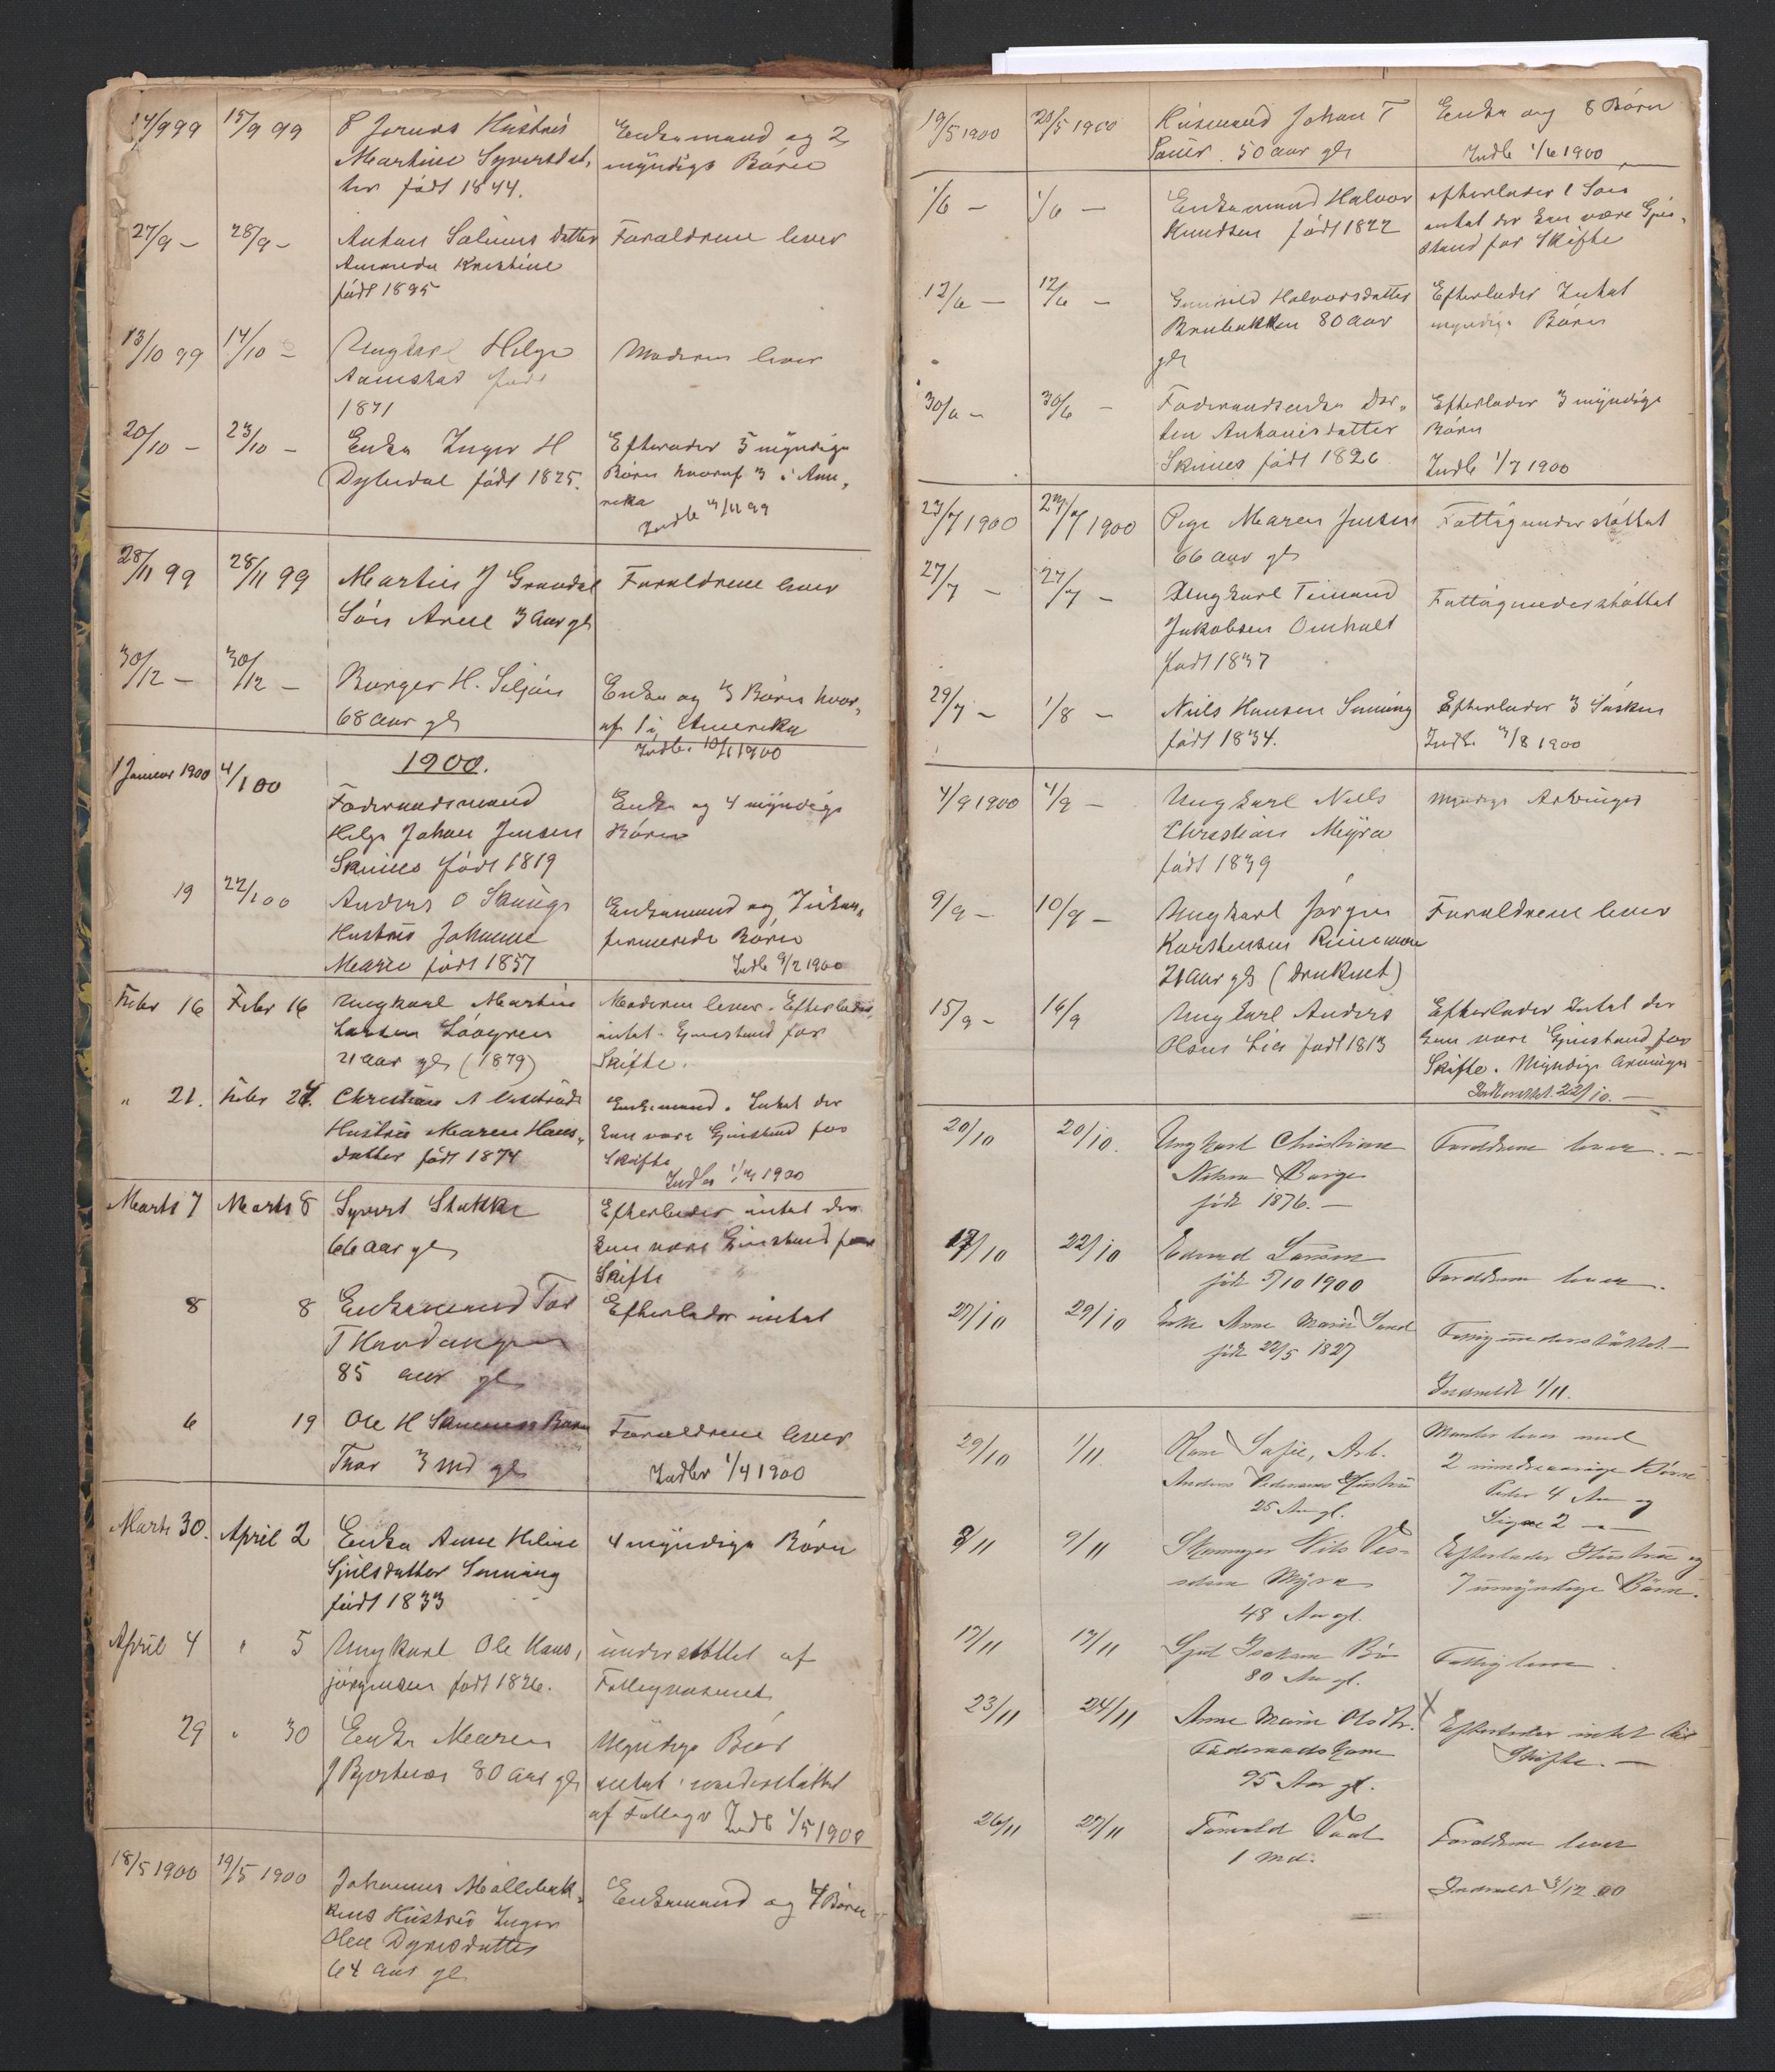 14/9 99 15/9 99 P Jornas Hustru Enkemand og 2
Martine Syversdat, myndige Børn
ter født 1844.
27/9 – 28/9 – Anton Salines datter Forældrene lever
Amanda Kristine
født 1895
13/10 99 14/10 – Ungkarl Helge Moderen lever
Aamstad født
1871
20/10 – 23/10 – Enke Inger H Efterlader 5 myndige
Dyledal født 1825. Børn hvoraf 3 i Ame,
rika
Indb 3/11 99
28/11 99 28/11 99 Martin J Grandal Forældrene lever
Søn Arne 3 aar gl
30/12 – 30/12 – Borger H. Siljan Enke og 3 Børn hvor,
68 aar gl af 1 i Amerika
Indb. 10/1 1900
1900.
1 Januar 1900 4/1 00
Føderaadsmand Enke og 4 myndige
Helge Johan Jensen Børn
Skinnes født 1819
19 22/1 00 Anders O Skauge Enkemand og Inkon,
Hustru Johanne firmerede Børn
Marie født 1857 Indb 9/2 1900
Febr 16 Febr 16 Ungkarl Martin Moderen lever. Efterlader
Larsen Løvgren intet Gjenstand for
21 aar gl (1879) Skifte.
" 21. Febr 24. Christian A Hustru Enkemand. Intet der
Hustru Maren Hans, kan være Gjenstand for
datter født 1874 Skifte
Indb 1/3 1900
Marts 7 Marts 8 Syvert Stakke Efterlader intet der
66 aar gl kan være Gjenstand for
Skifte
8 8 Enkemand Tor Efterlader intet
T Hardangen
85 aar gl
6 19 Ole H Skinnes Barn Forældrene lever
Thor 3 md gl Indb 1/4 1900
Marts 30. April 2 Enke Anne Heline 4 myndige Børn
Gjulsdatter Sanning
født 1833
April 4 " 5 Ungkarl Ole Hans, understøttet af
jørgensen født 1826. Fattigvæsenet
29 " 30 Enke Maren Myndige Børn
J Bjertnæs 80 aar gl intet. understøttet
af Fattigv Indb 1/5 1900
18/5 1900 19/5 1900 Johannes Møllebak,
kens Hustru Inger Enkemand og 4 Børn
Olea Dyresdatter
64 aar gl
19/5 1900 20/5 1900 Husmand Johan T Enke og 8 Børn
50 aar gl Indb 1/6 1900
1/6 – 1/6 – Enkemand Halvor efterlader 1 Søn
Knudsen født 1822 intet der kan være Gjen,
stand for Skifte
12/6 – 12/6 – Gunhild Halvorsdatter Efterlader Intet
Brubakken 80 aar myndige Børn
gl
30/6 – 30/6 – Føderaadsenke Dor, Efterlader 3 myndige
tea Anthonisdatter Børn
Skinnes født 1826 Indb 1/7 1900
23/7 1900 24/7 1900 Pige Maren Jensen Fattigunderstøttet
66 aar gl
27/7 – 27/7 – Ungkarl Teimand Fattigunderstøttet
Jakobsen Omholt
født 1837
29/7 – 1/8 – Niels Hansen Sanning Efterlader 3 Søsken
født 1834. Indb 3/8 1900
4/9 1900 4/9 – Ungkarl Niels Myndige Arvinger
Christian Myra
født 1839
9/9 – 10/9 – Ungkarl Jørgen Forældrene lever
Karstensen
21 aar gl (druknet)
15/9 – 16/9 Ungkarl Anders Efterlader Intet der
Olsen Lia født 1813 kan være Gjenstand for
Skifte. Myndige Arvinger
Indberettet 22/10. –
20/10 20/10. Ungkarl Christian Forældrene lever. –
Nilsen Borge
født 1876. –
17/10 22/10 Edvard Larsen
født 5/10 1900 Forældrene lever.
27/10 29/10 Enke Anne Marie Sand Fattigunderstøttet –
født 22/5 1827
Indmeldt 1/11.
29/10 1/11 Kone Sofie, Arb. Manden lever med
Anders Pedersens Hustru 2 mindreaarige Børn
25 Aar gl. Peder 4 Aar og
Signe 2 – –
8/11 9/11 Skomager Nils Efterlader Hustru og
Myra 7 umyndige Børn.
48 Aar gl.
17/11 17/11 Gjul Isaksen Bø Fattiglem.
80 Aar gl.
23/11 24/11 Anne Marie Olsdtr. X Efterlader intet til
Føderaadskone Skifte. –
95 Aar gl.
26/11 27/11 Torvald Forældrene lever
1 Md.
Indmeldt 3/12 00